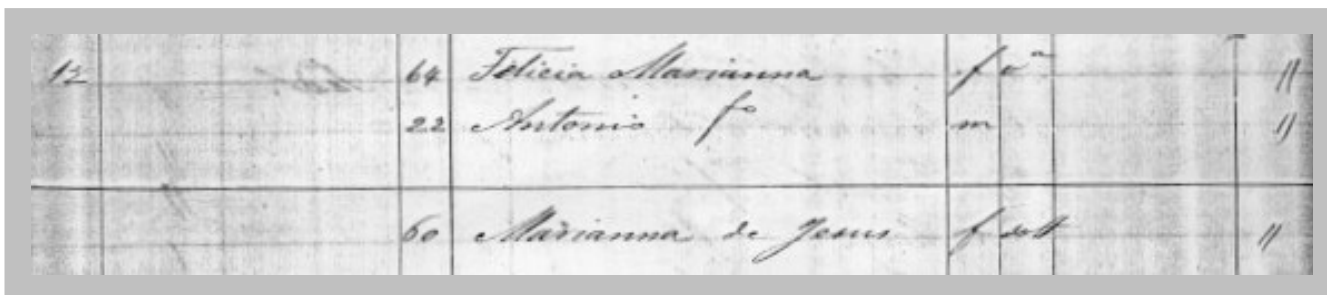 12 64 Felicia Marianna f vᵃ "
22 Antonio fº m "
60 Marianna de Jesus f solt "